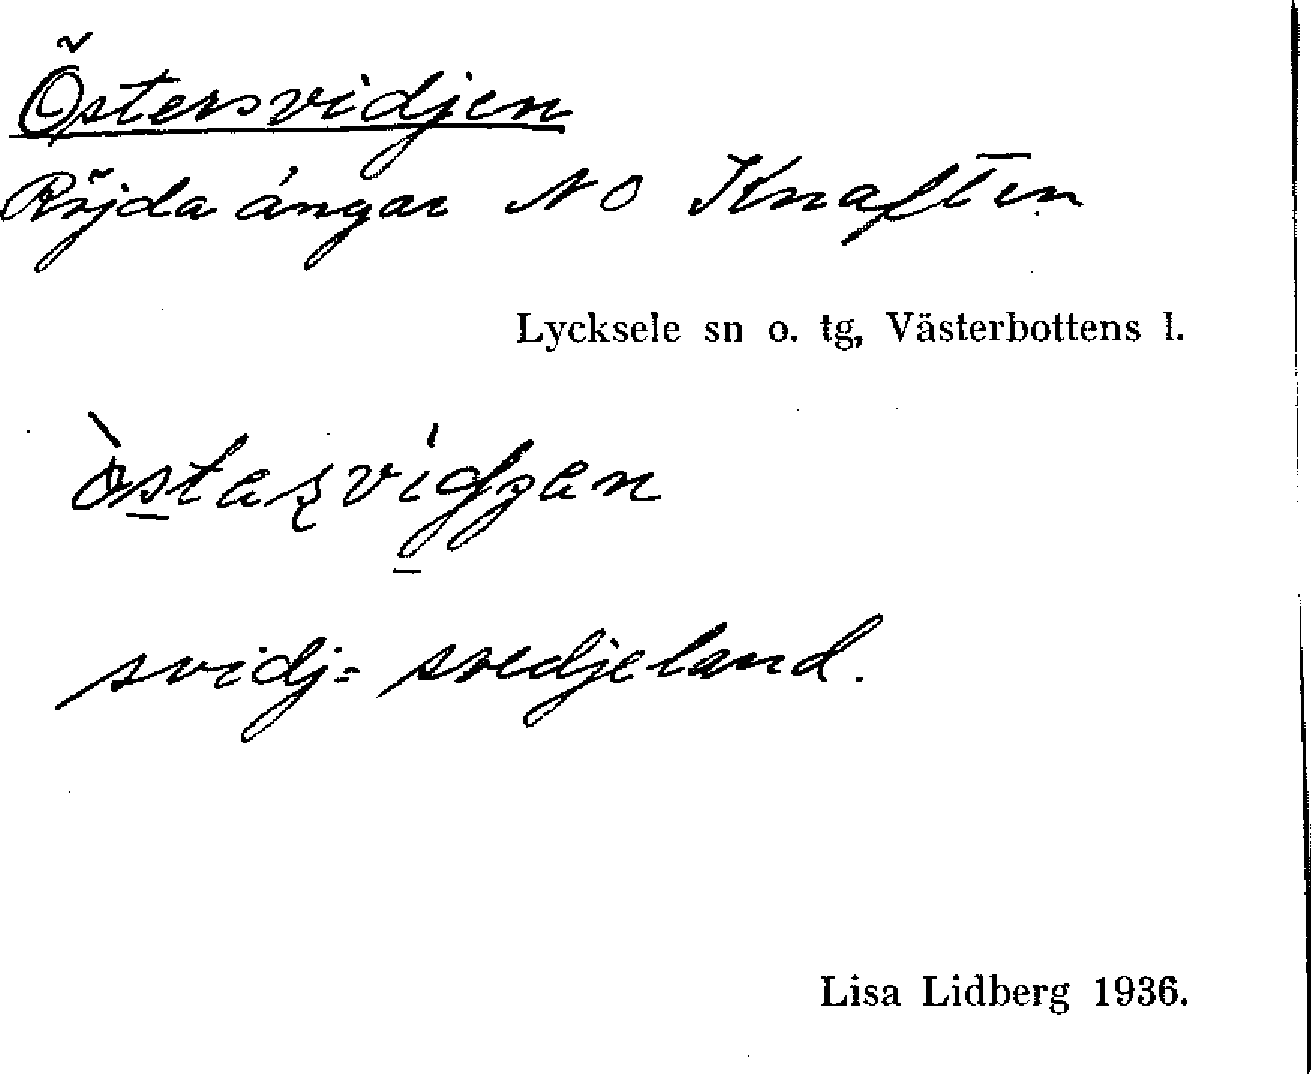 Östersvidjen
Röjda ängar NO Knaften
Lycksele sn o. tg, Västerbottens l.
svidj= svedjeland.
Lisa Lidberg 1936.